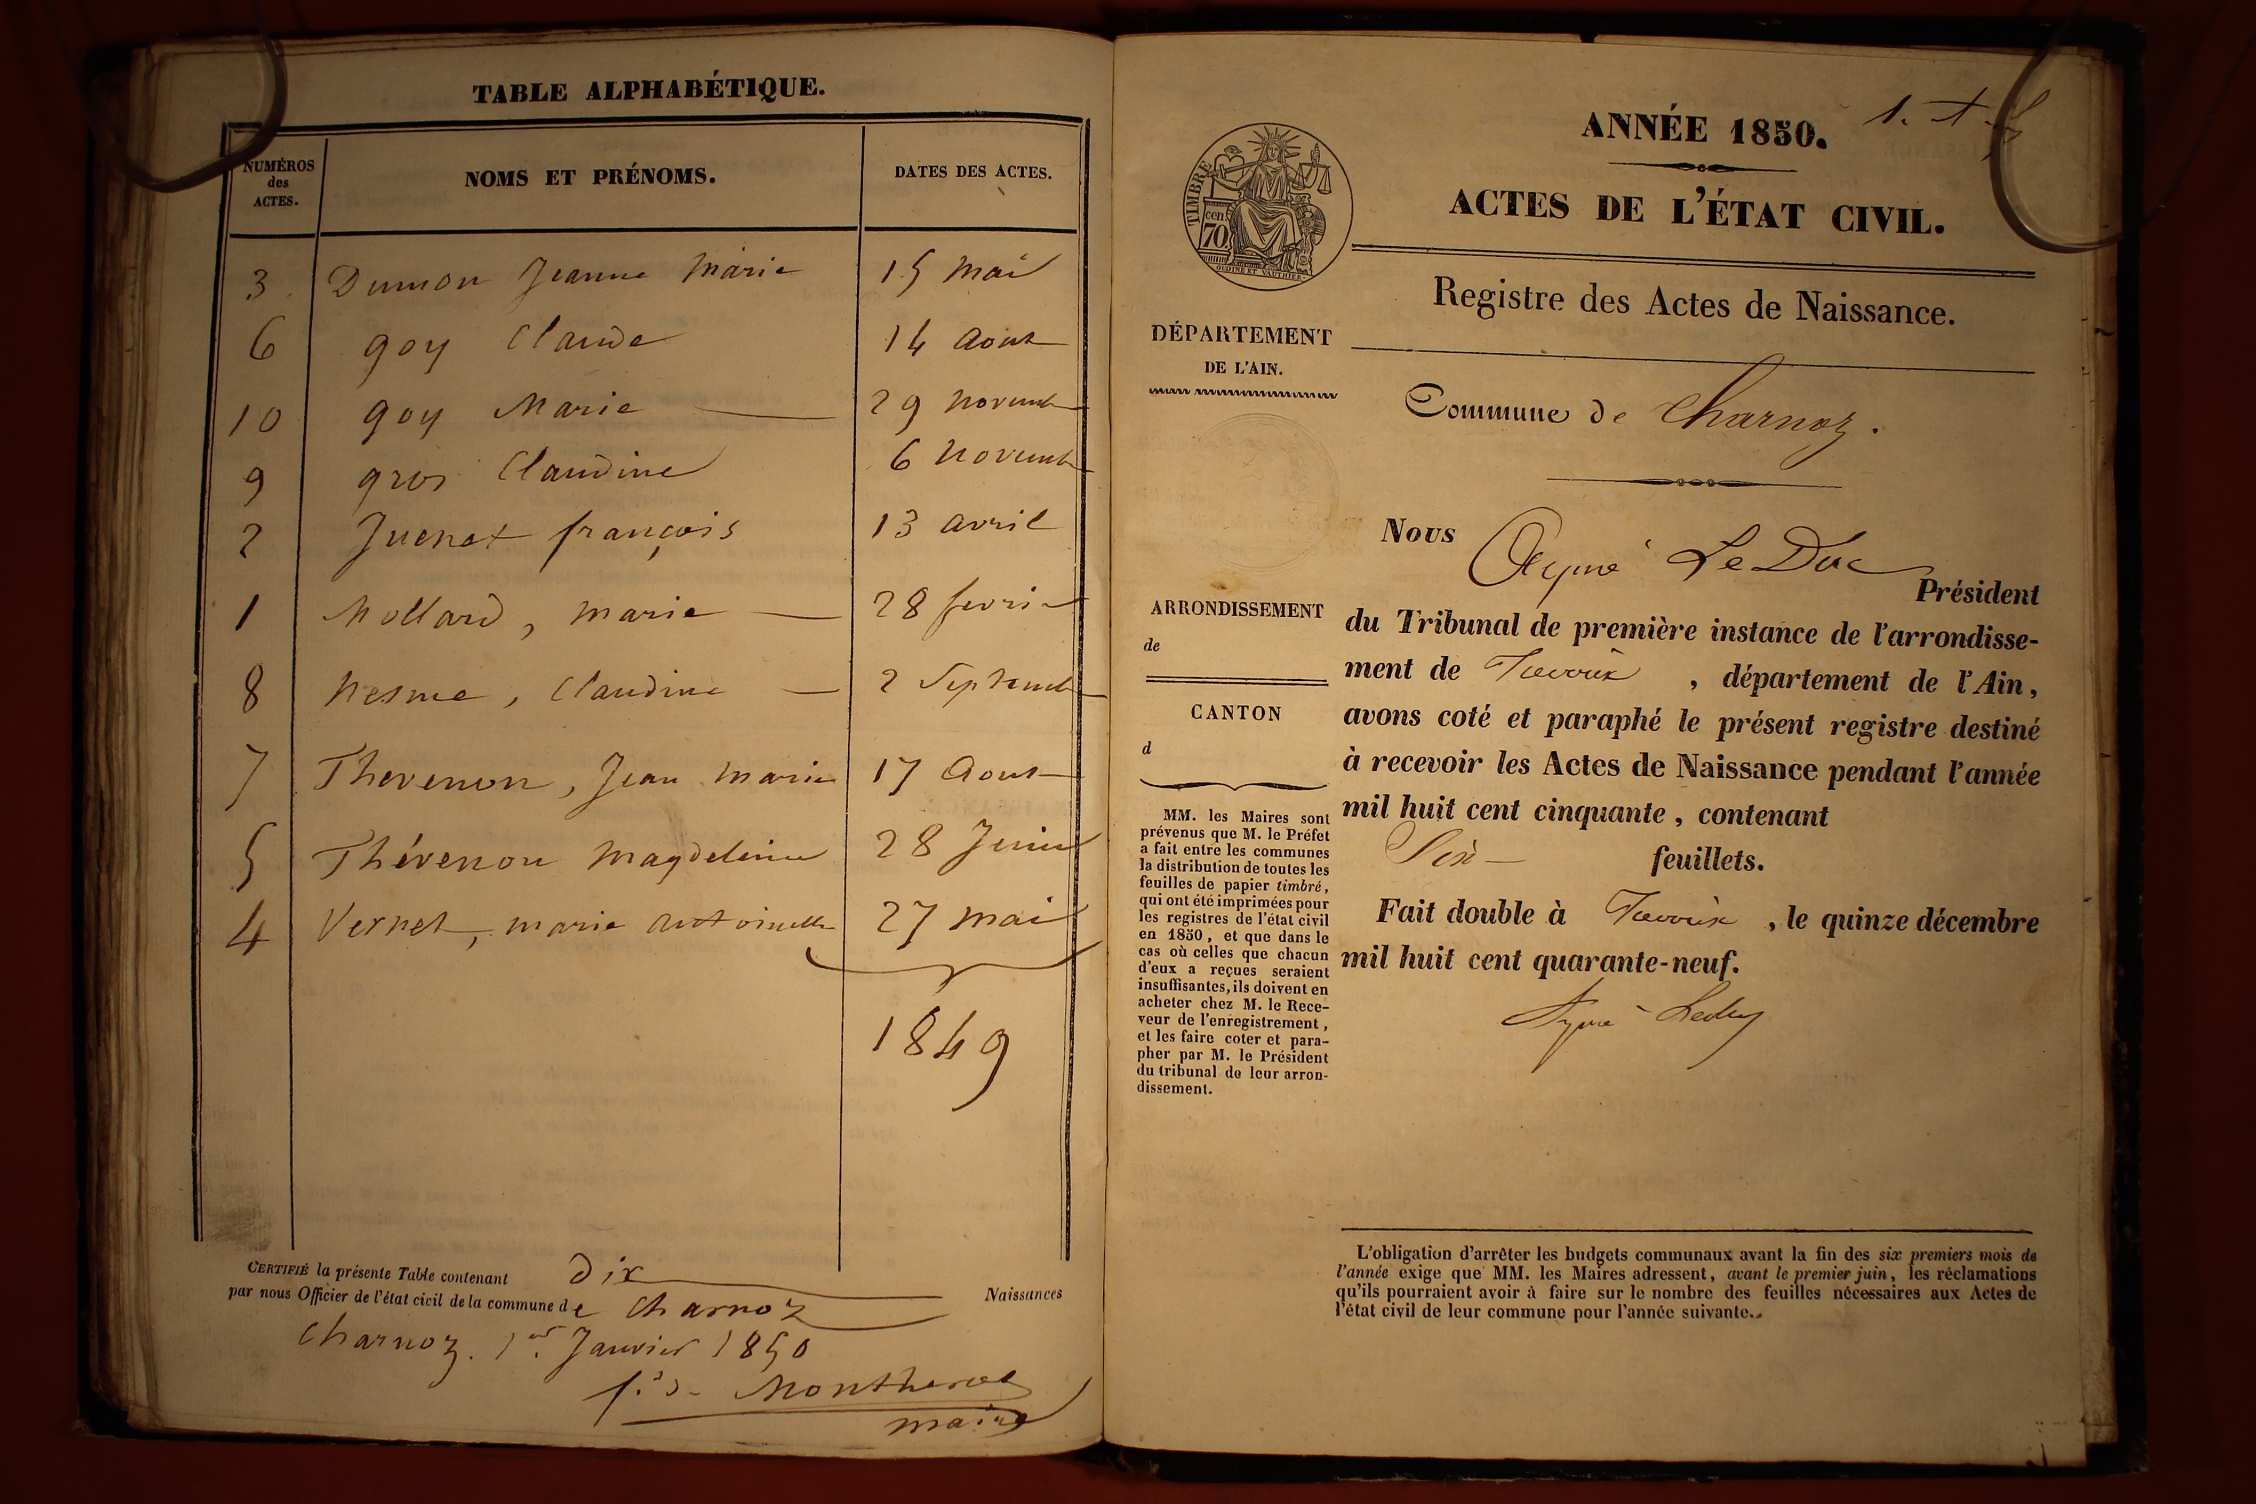 TABLE ALPHABÉTIQUE.
NUMÉROS
des
ACTES.
NOMS ET PRÉNOMS.
DATES DES ACTES.
3 Dumon Jeanne Marie 15 Mai
6 goy Claude 14 Aout
10 goy Marie 29 Novemb
9 gros Claudine 6 Novemb
2 Juenet françois 13 avril
1 Mollard, Marie 28 fevrier
8 Nesme, Claudine 2 Septemb
7 Thevenon, Jean Marie 17 Aout
5 Thévenon Magdeleine 28 Juin
4 Vernet, marie antoinette 27 mai
1849
CERTIFIÉ la présente Table contenant dix Naissances
par nous Officier de l'état cicil de la commune de Charnoz
Charnoz. 1er. Janvier 1850
Montherot
maire
ANNÉE 1850.
ACTES DE L'ÉTAT CIVIL.
TIMBRE
cen
70
OUDINÉ ET VAUTHIER.
Registre des Actes de Naissance.
DÉPARTEMENT
DE L'AIN.
Commune de Charnoz.
Nous Le Duc
Président
du Tribunal de première instance de l'arrondisse-
ment de Trévoux, département de l'Ain,
avons coté et paraphé le présent registre destiné
à recevoir les Actes de Naissance pendant l'année
mil huit cent cinquante, contenant
Six feuillets.
Fait double à Trévoux, le quinze décembre
mil huit cent quarante-neuf.
ARRONDISSEMENT
de
CANTON
d
MM. les Maires sont
prévenus que M. le Préfet
a fait entre les communes
la distribution de toutes les
feuilles de papier timbré,
qui ont été imprimées pour
les registres de l'état civil
en 1850, et que dans le
cas où celles que chacun
d'eux a reçues seraient
insuffisantes, ils doivent en
acheter chez M. le Rece-
veur de l'enregistrement,
et les faire coter et para-
pher par M. le Président
du tribunal de leur arron-
dissement.
L'obligation d'arrêter les budgets communaux avant la fin des six premiers mois de
l'année exige que MM. les Maires adressent, avant le premier juin, les réclamations
qu'ils pourraient avoir à faire sur le nombre des feuilles nécessaires aux Actes de
l'état civil de leur commune pour l'année suivante.